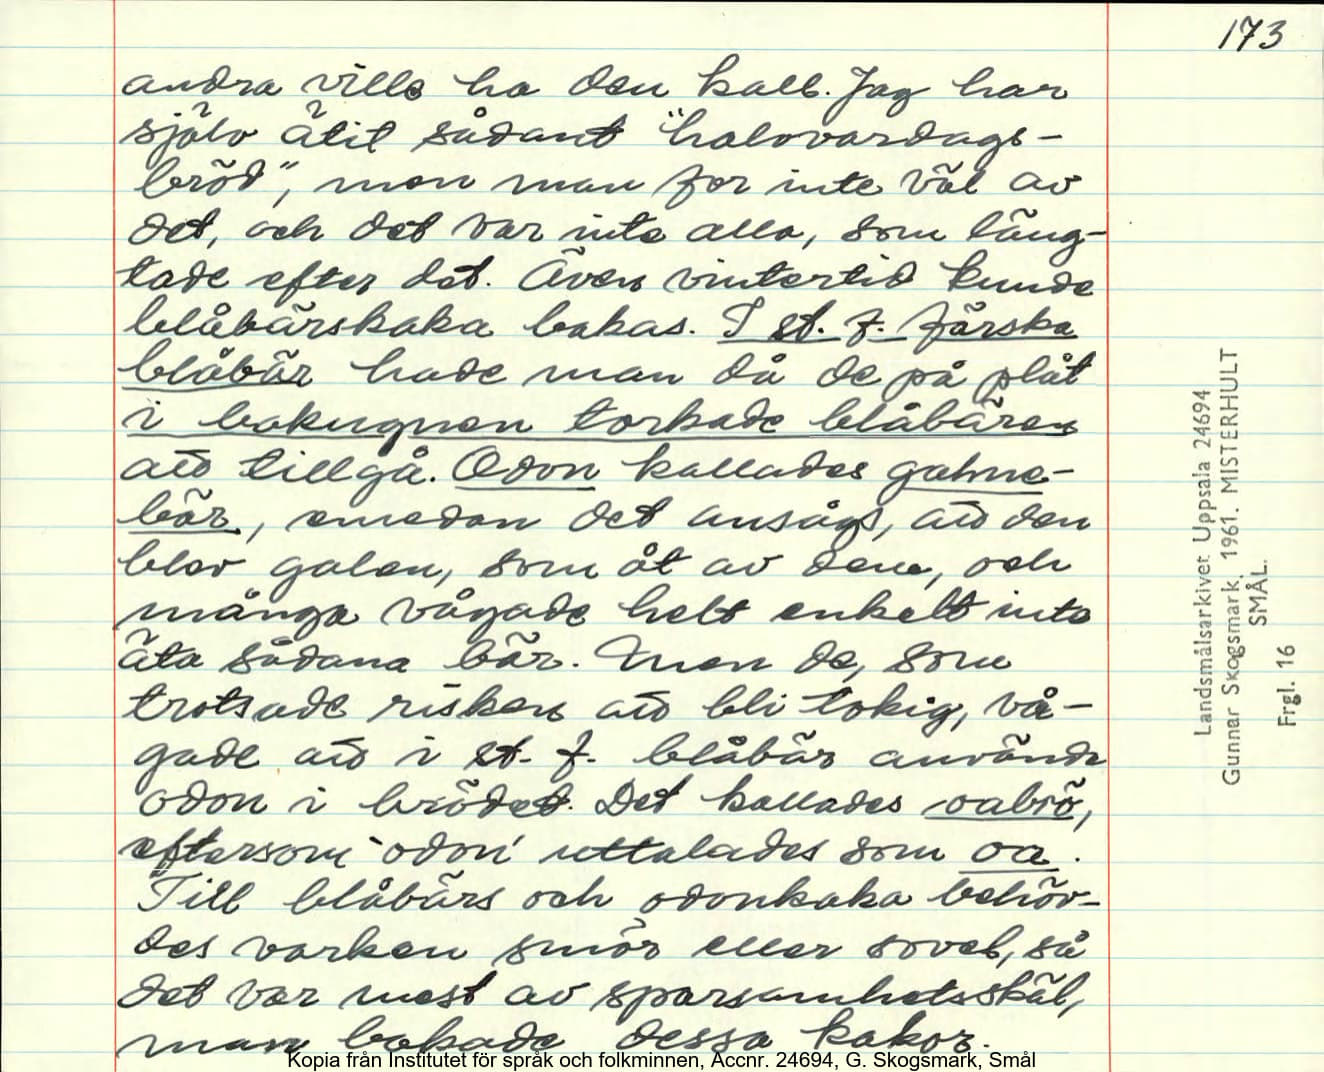 173
andra ville ha den kall. Jag har
själv ätit sådant "halvvardags-
bröd", men man for inte väl av
det, och det var inte alla, som läng-
tade efter det. Även vintertid kunde
blåbärskaka bakas. I st. f. färska
blåbär hade man då de på plåt
i bakugnen torkade blåbären
att tillgå. Odon kallades galne-
bär, emedan det ansågs, att den
blev galen, som åt av dem, och
många vågade helt enkelt inte
äta sådana bär. Men de, som
trotsade risken att bli tokig, vå-
gade att i st. f. blåbär använda
odon i brödet. Det kallades oabrö,
eftersom "odon" uttalades som oa.
Till blåbärs och odonkaka behöv-
des varken smör eller sovel, så
det var mest av sparsamhetsskäl,
man bakade dessa kakor.
Landsmålsarkivet Uppsala 24694
Gunnar Skogsmark, 1961. MISTERHULT
SMÅL.
Frgl. 16
Kopia från Institutet för språk och folkminnen, Accnr. 24694, G. Skogsmark, Smål